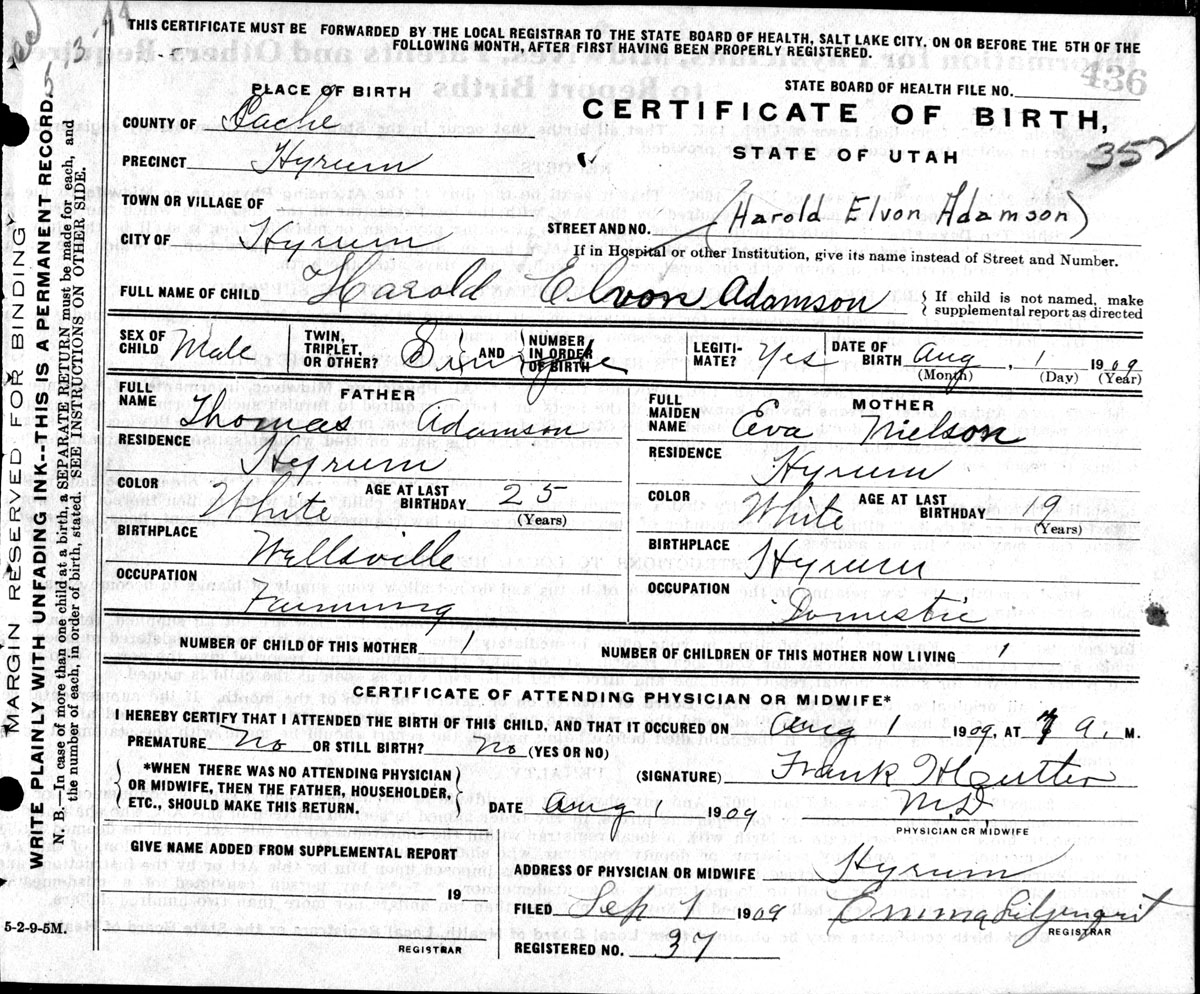 THIS CERTIFICATE MUST BE FORWARDED BY THE LOCAL REGISTRAR TO THE STATE BOARD OF HEALTH, SALT LAKE CITY, ON OR BEFORE THE 5TH OF THE
FOLLOWING MONTH, AFTER FIRST HAVING BEEN PROPERLY REGISTERED.
436
STATE BOARD OF HEALTH FILE NO.
PLACE OF BIRTH
CERTIFICATE OF BIRTH,
STATE OF UTAH
352
COUNTY OF Cache
PRECINCT Hyrum
TOWN OR VILLAGE OF
CITY OF Hyrum
STREET AND NO. (Harold Elvon Adamson)
If in Hospital or other Institution, give its name instead of Street and Number.
FULL NAME OF CHILD Harold Elvon Adamson { If child is not named, make
supplemental report as directed
SEX OF CHILD Male TWIN, TRIPLET, OR OTHER? Single AND NUMBER IN ORDER OF BIRTH LEGITIMATE? Yes DATE OF BIRTH Aug, 1 1909
(Month) (Day) (Year)
FATHER
FULL NAME Thomas Adamson
RESIDENCE Hyrum
COLOR White AGE AT LAST BIRTHDAY 25
(Years)
BIRTHPLACE Wellsville
OCCUPATION Farming
MOTHER
FULL MAIDEN NAME Eva Nielson
RESIDENCE Hyrum
COLOR White AGE AT LAST BIRTHDAY 19
(Years)
BIRTHPLACE Hyrum
OCCUPATION Domestic
NUMBER OF CHILD OF THIS MOTHER 1 NUMBER OF CHILDREN OF THIS MOTHER NOW LIVING 1
CERTIFICATE OF ATTENDING PHYSICIAN OR MIDWIFE*
I HEREBY CERTIFY THAT I ATTENDED THE BIRTH OF THIS CHILD, AND THAT IT OCCURED ON Aug 1 1909, AT 7 a. M.
PREMATURE No OR STILL BIRTH? No (YES OR NO)
*WHEN THERE WAS NO ATTENDING PHYSICIAN
OR MIDWIFE, THEN THE FATHER, HOUSEHOLDER,
ETC., SHOULD MAKE THIS RETURN.
(SIGNATURE) Frank H Cutter
M,D,
PHYSICIAN OR MIDWIFE
DATE Aug 1 1909
GIVE NAME ADDED FROM SUPPLEMENTAL REPORT
19
REGISTRAR
ADDRESS OF PHYSICIAN OR MIDWIFE Hyrum
FILED Sep 1 1909 Emma Liljenqrit
REGISTRAR
REGISTERED NO. 37
5-2-9-5M.
MARGIN RESERVED FOR BINDING
WRITE PLAINLY WITH UNFADING INK--THIS IS A PERMANENT RECORD.
N. B.—In case of more than one child at a birth, a SEPARATE RETURN must be made for each, and
the number of each, in order of birth, stated. SEE INSTRUCTIONS ON OTHER SIDE.